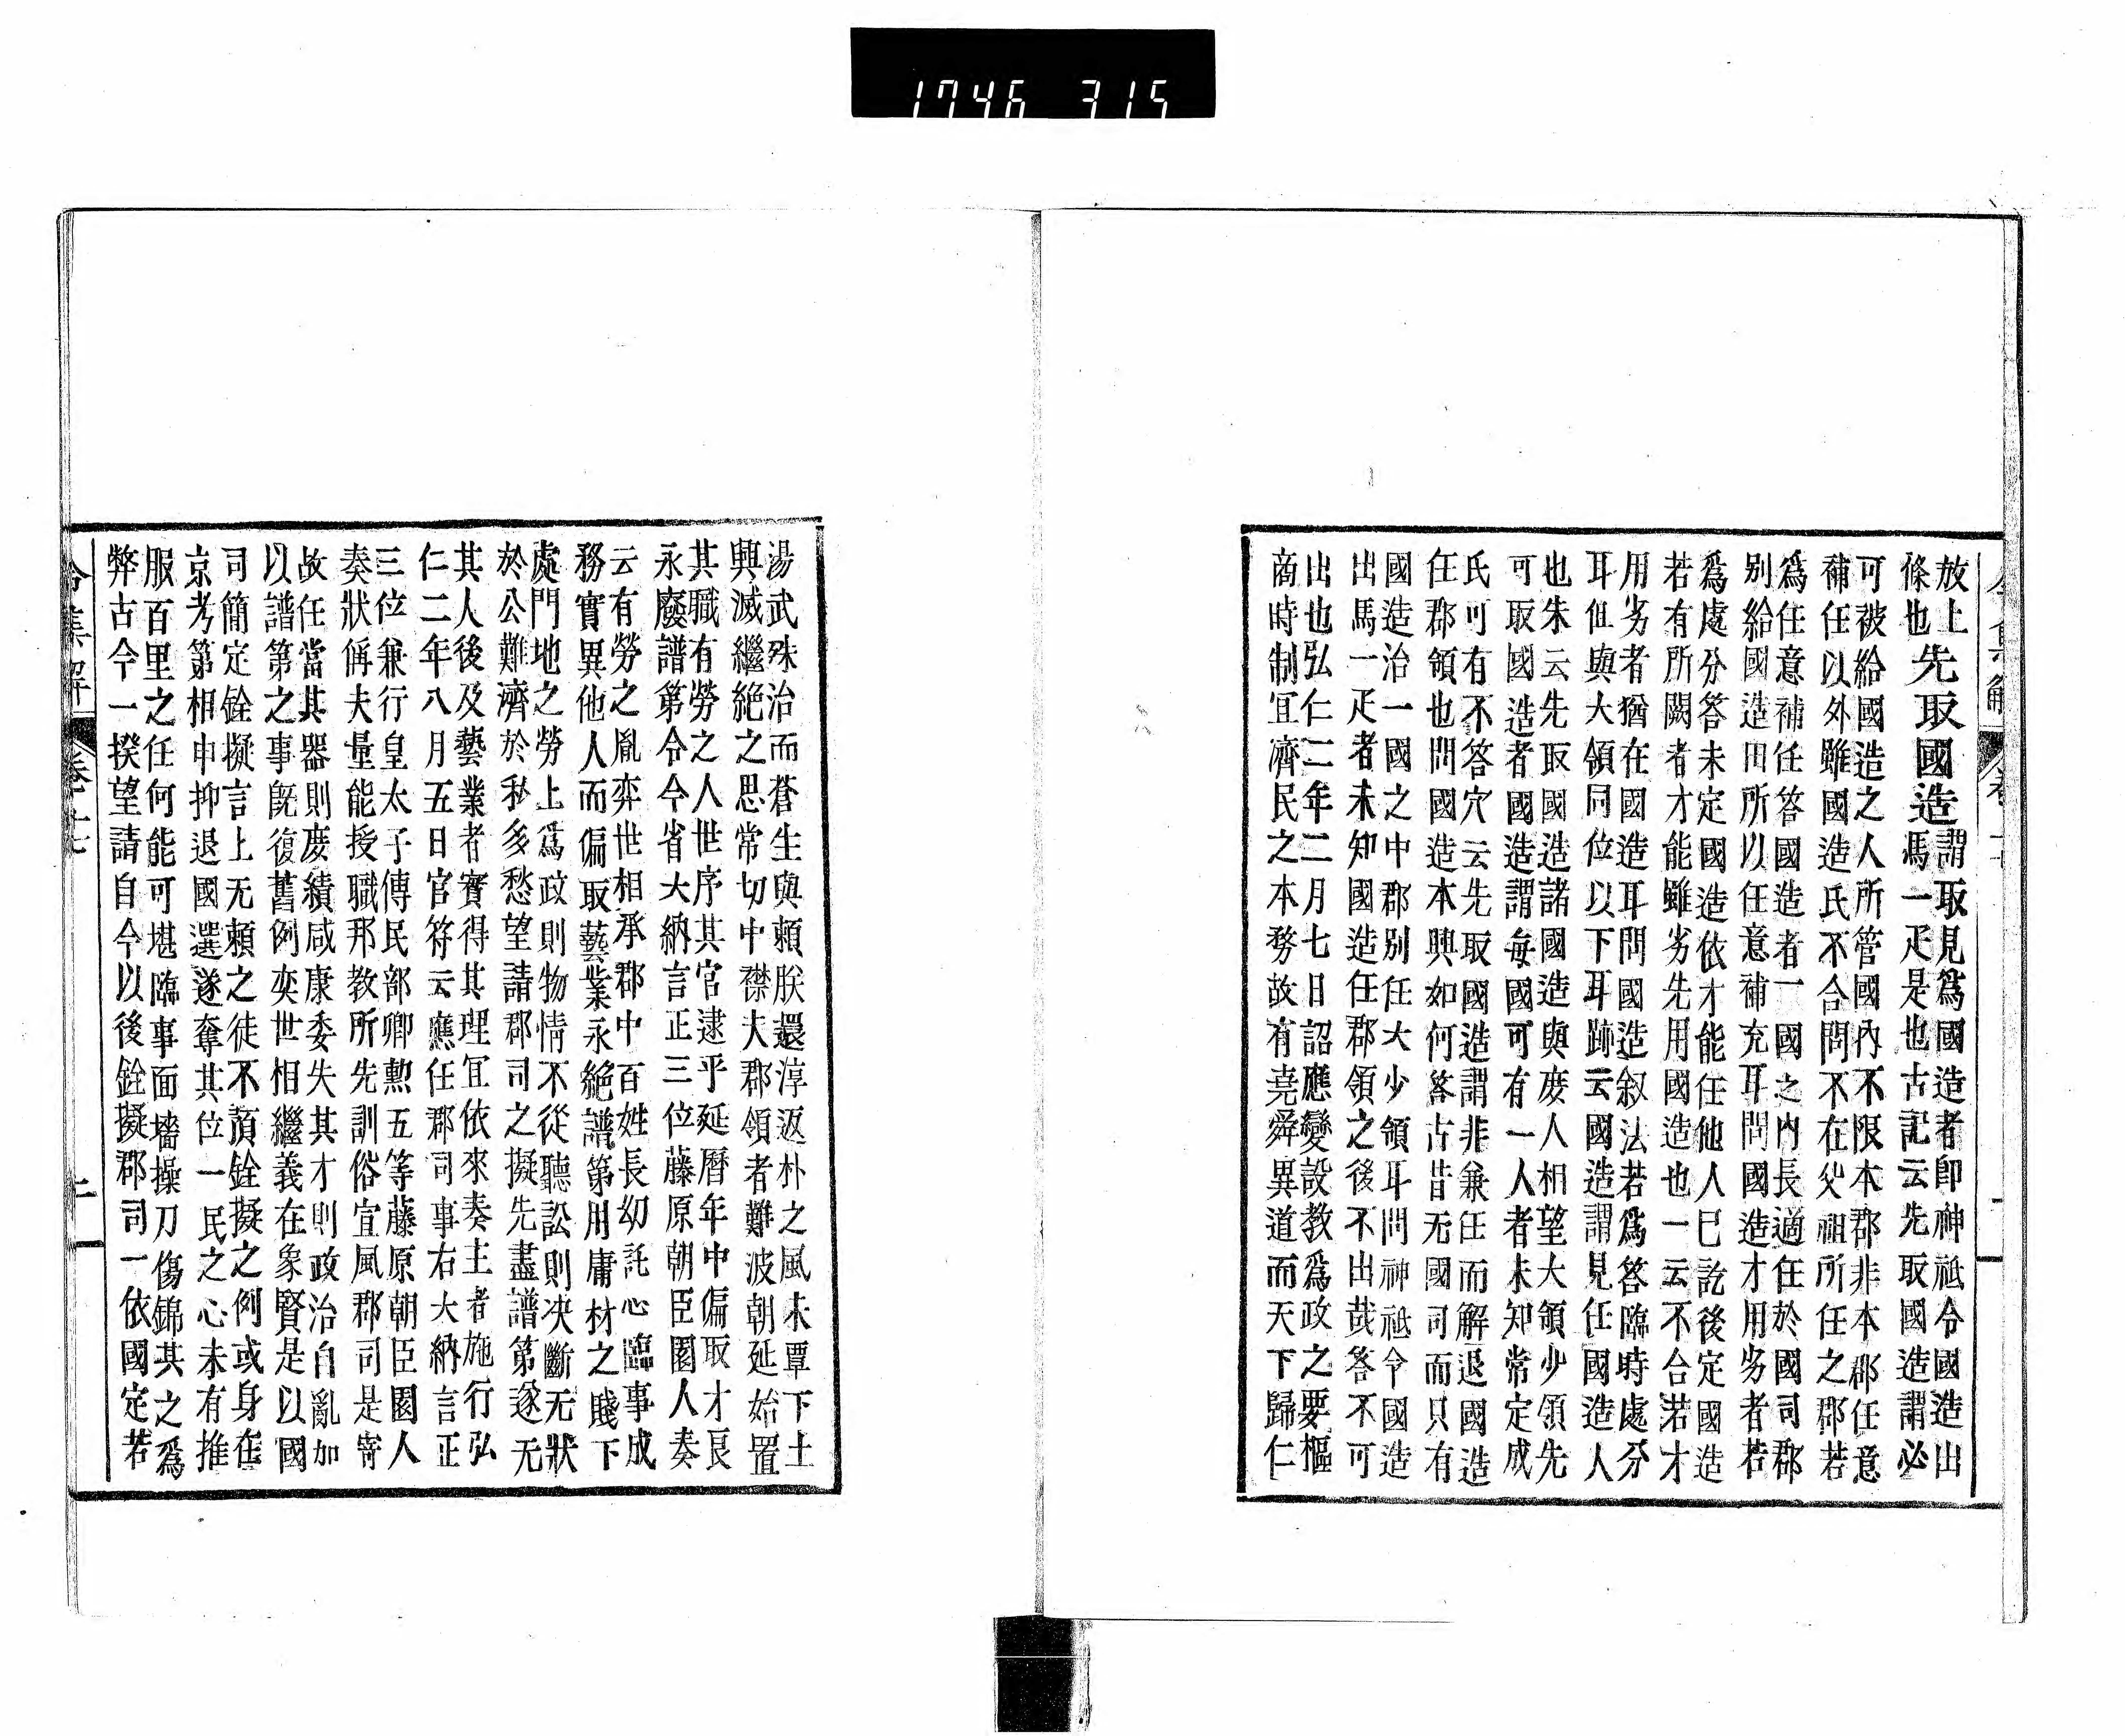 1746 315
放上
條也
先取國造
謂取見爲國造者卽神祗令國造出
馬一疋是也古記云先取國造謂必
可被給國造之人所管國內不限本郡非本郡任意
補任以外雖國造氏不合問不在父祖所任之郡若
爲任意補任答國造者一國之內長適任於國司郡
別給國造田所以任意補充耳問國造才用劣者若
爲處分答未定國造依才能任他人已訖後定國造
若有所闕者才能雖劣先用國造也一云不合若才
用劣者猶在國造耳問國造叙法若爲答臨時處分
耳但與大領同位以下耳跡云國造謂見任國造人
也朱云先取國造諸國造與庶人相望大領少領先
可取國造者國造謂每國可有一人者未知常定成
氏可有不答穴云先取國造謂非兼任而解退國造
任郡領也問國造本興如何答古昔无國司而只有
國造治一國之中郡別任大少領耳問神祗令國造
出馬一疋者未知國造任郡領之後不出哉答不可
出也弘仁二年二月七日詔應變設教爲政之要樞
商時制宜濟民之本務故有堯舜異道而天下歸仁
湯武殊治而蒼生與賴朕還淳返朴之風未覃下土
興滅繼絕之思常切中襟夫郡領者難波朝延始置
其職有勞之人世序其官逮乎延曆年中偏取才良
永廢譜第令令省大納言正三位藤原朝臣園人奏
云有勞之胤弈世相承郡中百姓長幼託心臨事成
務實異他人而偏取藝業永絕譜第用庸材之賤下
處門地之勞上爲政則物情不從聽訟則决斷无狀
於公難濟於私多愁望請郡司之擬先盡譜第遂无
其人後及藝業者實得其理宜依來奏主者施行弘
仁二年八月五日官符云應任郡司事右大納言正
三位兼行皇太子傅民部卿勲五等藤原朝臣園人
奏狀偁夫量能授職邦教所先訓俗宣風郡司是寄
故任當其器則庶績咸康委失其才則政治自亂加
以譜第之事旣復舊例奕世相繼義在象賢是以國
司簡定銓擬言上无賴之徒不預銓擬之例或身在
京考第相申抑退國選遂奪其位一民之心未有推
服百里之任何能可堪臨事面墻操刀傷錦其之爲
弊古今一揆望請自今以後銓擬郡司一依國定若
令集解 卷十七 二